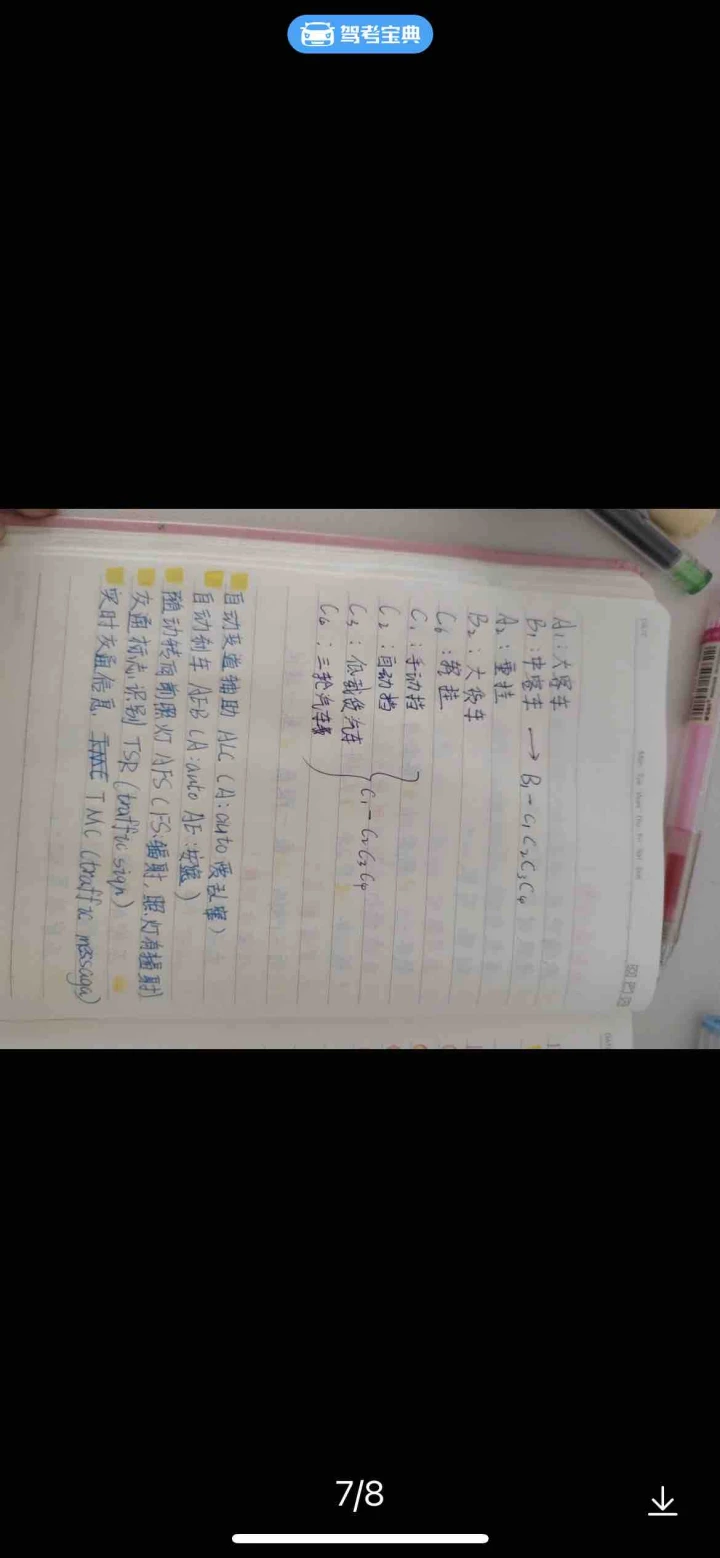 驾考宝典
A1:大客车
B1:中客车 → B1-C1C2C3C4
A2:重挂
B2:大货车
C6:轻挂
C1:手动挡
C2:自动挡
C3:低载货汽车
C1-C2C3C4
C4:三轮汽车
自动变道辅助 ALC (A:auto
自动刹车 AEB (A:auto AE:安盔)
随动转向前照灯 AFS (FS:辐射,照灯有辐射)
交通标志识别 TSR (traffic sign)
实时交通信息. TMC (traffic messaga)
7/8